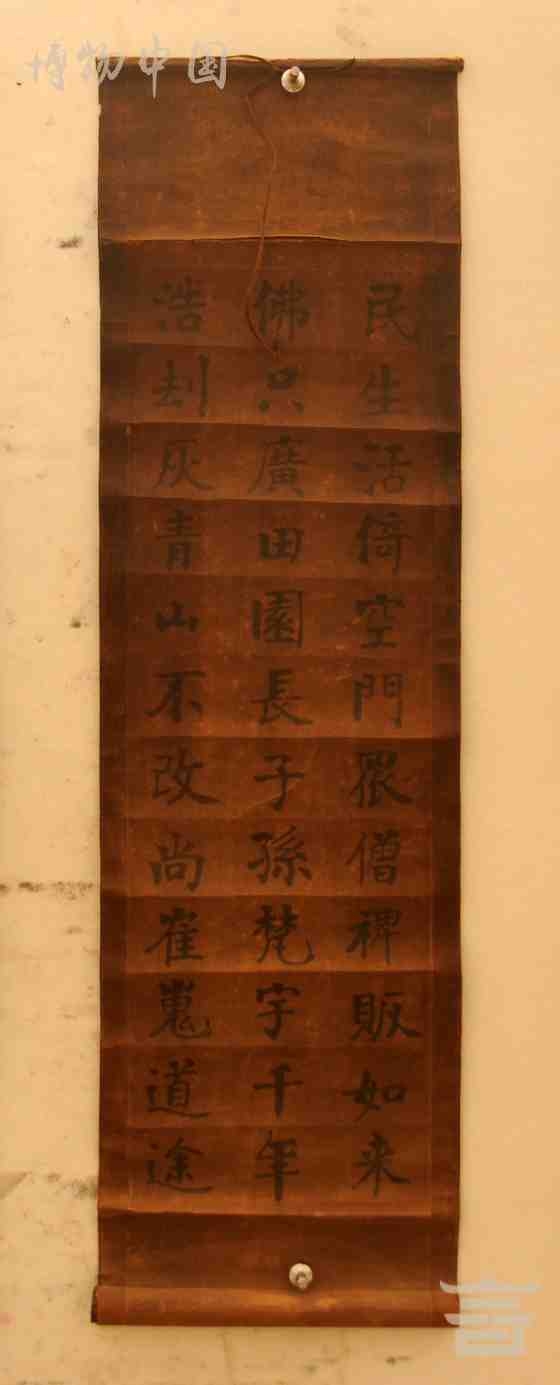 博物中国
民生活倚空門眾僧裨販如来
佛只廣田園長子孫梵宇千年
浩刦灰青山不改尚崔嵬道途